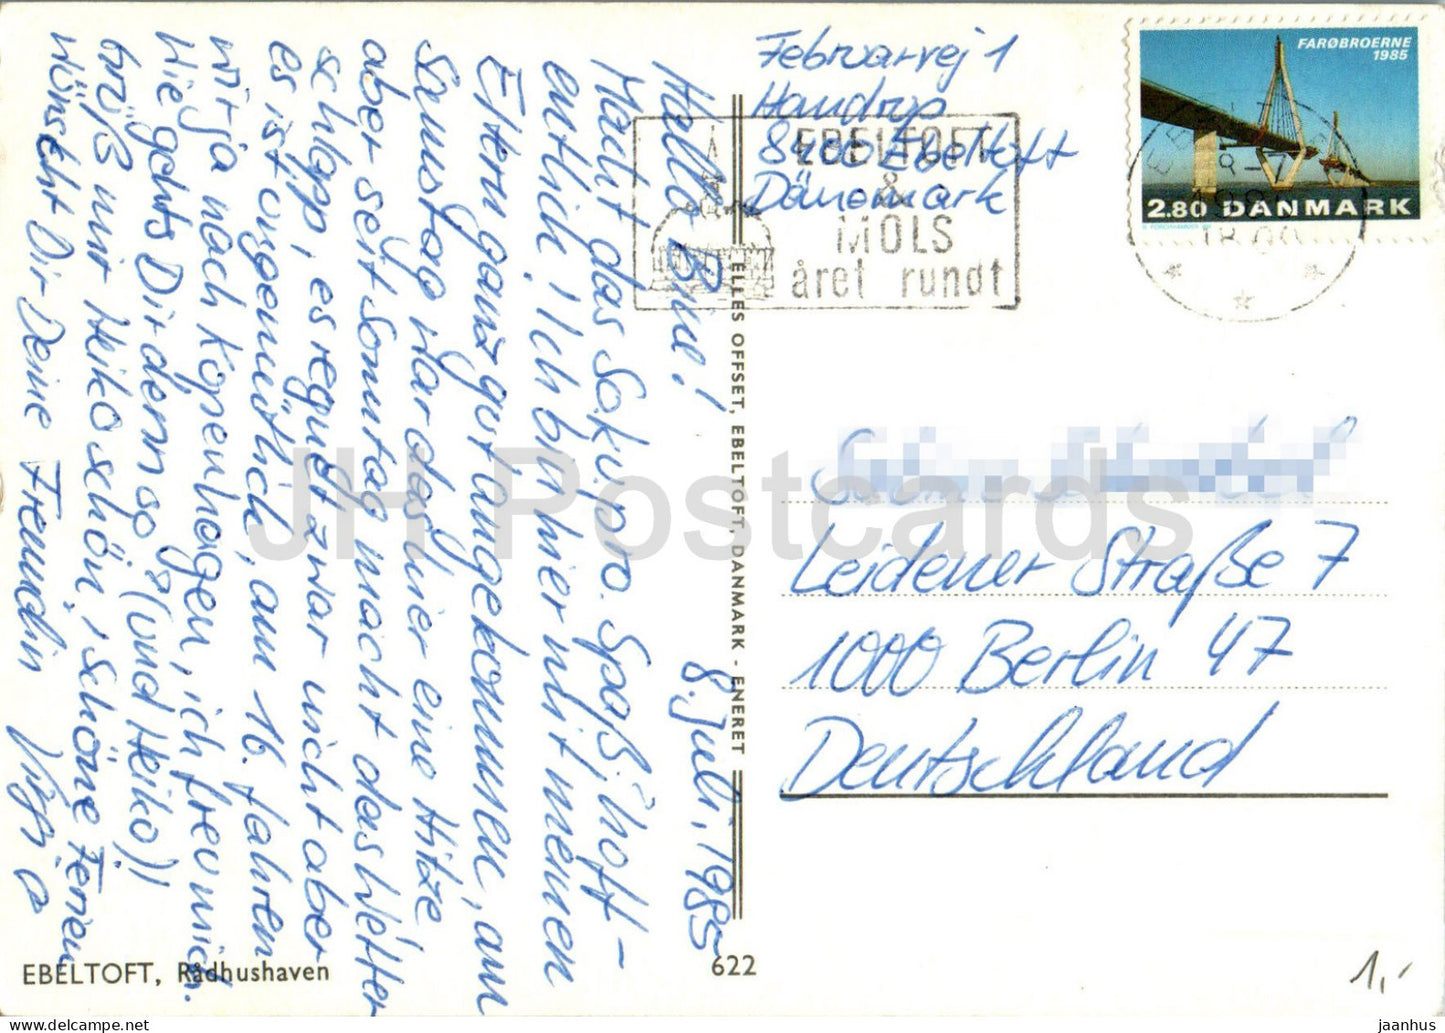 Februarvej 1
Handrup
8400 Ebeltoft
Dänemark
EBELTOFT
&
MOLS
året rundt
FARØBROERNE
1985
2.80 DANMARK
8. Juli, 1985
Hallo Bine!
Macht das Saku, pro. Spaß, hoff-
entlich! Ich bin hier mit meinen
Eltern ganz gut angekommen, am
Samstag war das hier eine Hitze
aber seit Sonntag macht das Wetter
schlapp, es regnet zwar nicht aber
es ist ungemütlich, am 16. fahren
wir ja nach Kopenhagen, ich freu mich.
Wie gehts Dir denn so? (und Heiko)!
Grüß mir Heiko schön, schöne Ferien
wünscht Dir Deine Freundin
ELLES OFFSET, EBELTOFT, DANMARK - ENERET
Leidener Straße 7
1000 Berlin 47
Deutschland
EBELTOFT, Rådhushaven
622
1,-
JH Postcards
jaanhus